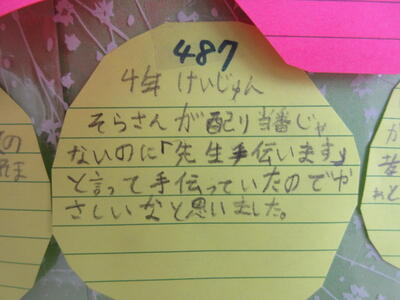 487
4年 けいじゅん
そらさんが配り当番じゃ
ないのに「先生手伝います」
と言って手伝っていたのでや
さしいなと思いました。